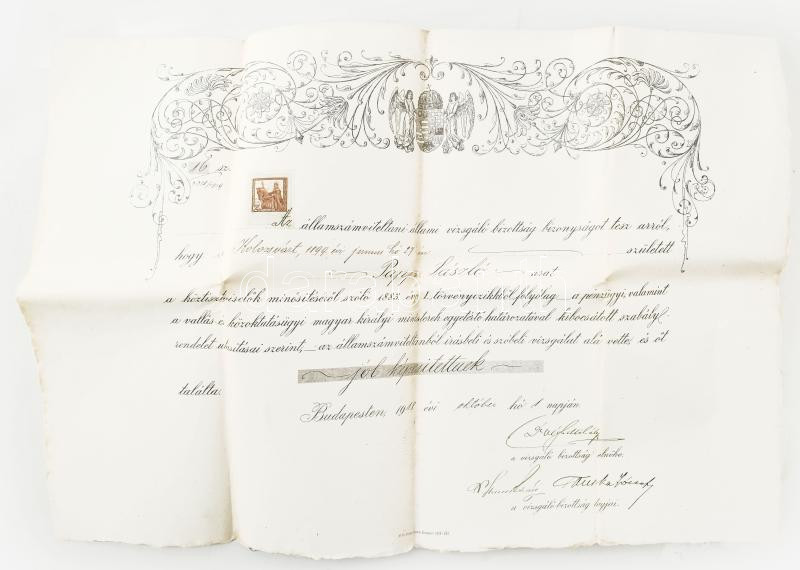 16 sz.
Az államszámviteltani állami vizsgáló bizottság bizonyságot tesz arról,
hogy a Kolozsvárt, 1899 év junius hó 27 én született
Papp László urat
a köztisztviselők minősítéséről szóló 1883. évi I. törvényczikkből folyólag a pénzügyi, valamint
a vallás és közoktatásügyi magyar királyi miniszterek egyetértő határozatával kibocsátott szabály-
rendelet utasításai szerint, az államszámvitelből írásbeli és szóbeli vizsgálat alá vette, és őt
jól képzettnek
találta.
Budapesten, 1918 évi október hó 1 napján
a vizsgáló bizottság elnöke.
a vizsgáló bizottság tagjai.